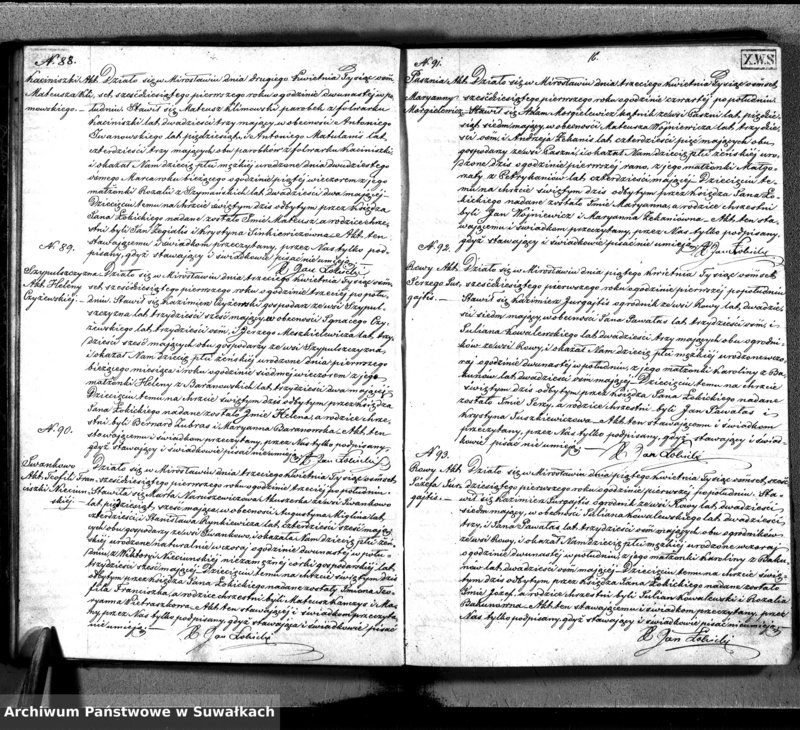 N. 88.
Kaciniszki Akt. Działo się w Mirosławiu dnia drugiego kwietnia Tysiąc ośm
Mateusza Kli set sześćdziesiątpierwszego roku o godzinie dwunastéj w po=
mowskiego.— łudniu. Stawił się Mateusz Klimowski parobek z folwarku
Kaciniszki lat dwadzieścia trzy mający, w obecności Antoniego
Iwanowskiego lat pięćdziesiąt, i Antoniego Matulanis lat
czterdzieści trzy mających obu parobków z folwarku Kaciniszki
i okazał Nam dziecię płci męzkiéj urodzone dnia dwudziestego
ósmego Marca roku bieżącego o godzinie piątéj wieczorem z jego
małżonki Rozalii z Szymańskich lat dwadzieścia dwa mającéj
Dziecięciu temu na chrzcie świętym dziś odbytym przez Księdza
Jana Łobickiego nadane zostało Imie Mateusz, a rodzice chrze=
stni byli Jan i Krystyna Sinkiewiczówna.— Akt ten
stawającemu i świadkom przeczytany, przez Nas tylko pod=
pisany, gdyż stawający i świadkowie pisać nie umieją.—
X Jan Łobicki
N. 89.
Szypulszczyzna Działo się w Mirosławiu dnia trzeciego kwietnia Tysiąc ośm
Akt Heleny set sześćdziesiątpierwszego roku o godzinie trzeciéj po połu=
Czyżewskiéj.— dniu. Stawił się Kazimierz Czyżewski gospodarz ze wsi Szypul
szczyzna lat trzydzieści sześć mający, w obecności Ignacego Czy
żewskiego lat trzydzieści ośm, i Jerzego Meszkielewicza lat trzy
dzieści sześć mających obu gospodarzy ze wsi Szypulszczyzna
i okazał Nam dziecię płci żeńskiéj urodzone dnia pierwszego
bieżącego miesiąca i roku o godzinie siódméj wieczorem z jego
małżonki Heleny z Baranowskich lat trzydzieści dwa mającéj
Dziecięciu temu na chrzcie świętym dziś odbytym przez Księdza
Jana Łobickiego nadane zostało Imie Helena, a rodzice chrze
stni byli Bernard Zubras i Maryanna Baranowska.— Akt ten
stawającemu i świadkom przeczytany, przez Nas tylko podpisany,
gdyż stawający i świadkowie pisać nie umieją.— X Jan Łobicki
N. 90.
Iwankowo Działo się w Mirosławiu dnia trzeciego kwietnia Tysiąc ośmset
Akt. Teofila Fran. sześćdziesiątpierwszego roku o godzinie trzeciéj po południu.
ciszki Niecium. Stawiła się Marta Naruszewiczowa Akuszerka ze wsi Iwankowo
skiéj.— lat pięćdziesiąt sześć mająca, w obecności Augustyna Miglina lat
czterdzieści, i Stanisława Rynkiewicza lat czterdzieści sześć mają
cych obu gospodarzy ze wsi Iwankowo, i okazała Nam dziecię płci żeń
skiéj urodzone naturalnie wczoraj o godzinie dwunastéj w połu=
dniu, z Wiktoryi Nieciunskiéj niezamężnéj córki gospodarskiéj lat
trzydzieści sześć mającéj. Dziecięciu temu na chrzcie świętym dziś
odbytym przez Księdza Jana Łobickiego nadane zostały Imiona Teo
fila Franciszka, a rodzice chrzestni byli Mateusz i Ma=
ryanna Pietraszkowna.— Akt ten stawającéj i świadkom przeczyta
ny, przez Nas tylko podpisany, gdyż stawająca i świadkowie pisać
nie umieją.— X Jan Łobicki
16.
X.W.S
N. 91.
Pasznia Akt. Działo się w Mirosławiu dnia trzeciego kwietnia Tysiąc ośmset
Maryanny sześćdziesiątpierwszego roku o godzinie czwartéj po południu.
Morgielewicz. Stawił się Adam Morgielewicz kątnik ze wsi Paszni lat pięćdzie
siąt siedm mający, w obecności Mateusza Wojniewicza lat trzydzie
ści ośm, i Andrzeja Łekanis lat czterdzieści pięć mających obu
gospodarzy ze wsi Paszni, i okazał Nam dziecię płci żeńskiéj uro
dzone dziś o godzinie pierwszéj z rana, z jego małżonki Małgo
rzaty z Pietrykanów lat czterdzieści mającéj. Dziecięciu te=
mu na chrzcie świętym dziś odbytym przez Księdza Jana Ło=
bickiego nadane zostało Imie Maryanna, a rodzice chrzestni
byli Jan Wojniewicz i Maryanna Łekanówna.— Akt ten sta=
wającemu i świadkom przeczytany, przez Nas tylko podpisany,
gdyż stawający i świadkowie pisać nie umieją. X Jan Łobicki
N. 92.
Rowy Akt. Działo się w Mirosławiu dnia piątego kwietnia Tysiąc ośmset
Jerzego Jur. sześćdziesiątpierwszego roku o godzinie pierwszéj po południu
gajtis.— Stawił się Kazimierz Jurgajtis ogrodnik ze wsi Rowy lat dwadzie
ścia siedm mający, w obecności Jana Pawałas lat trzydzieści ośm, i
Juliana Kowalewskiego lat dwadzieścia trzy mających obu ogrodni=
ków ze wsi Rowy, i okazał Nam dziecię płci męzkiéj urodzone wczo
raj o godzinie dwunastéj w południu, z jego małżonki Karoliny z Ba
kunów lat dwadzieścia ośm mającéj.— Dziecięciu temu na chrzcie
świętym dziś odbytym przez Księdza Jana Łobickiego nadane
zostało Imie Jerzy, a rodzice chrzestni byli Jan Pawałas i
Krystyna Juszkiewiczowa.— Akt ten stawającemu i świadkom
przeczytany, przez Nas tylko podpisany, gdyż stawający i świad=
kowie pisać nie umieją.— X Jan Łobicki
N. 93.
Rowy Akt. Działo się w Mirosławiu dnia piątego kwietnia Tysiąc ośmset, sześć
Józefa Jur. dziesiątpierwszego roku o godzinie pierwszéj po południu. Sta=
gajtis.— wił się Kazimierz Jurgajtis ogrodnik ze wsi Rowy lat dwadzieścia
siedm mający, w obecności Juliana Kowalewskiego lat dwadzieścia
trzy, i Jana Pawałas lat trzydzieści ośm mających obu ogrodników
ze wsi Rowy, i okazał Nam dziecię płci męzkiéj urodzone wczoraj
o godzinie dwunastéj w południu, z jego małżonki Karoliny z Baku
nów lat dwadzieścia ośm mającéj. Dziecięciu temu na chrzcie świę=
tym dziś odbytym przez Księdza Jana Łobickiego nadane zostało
Imie Józef, a rodzice chrzestni byli Julian Kowalewski i Rozalia
Bakunowna.— Akt ten stawającemu i świadkom przeczytany, przez
Nas tylko podpisany, gdyż stawający i świadkowie pisać nie umieją.—
X Jan Łobicki
Archiwum Państwowe w Suwałkach